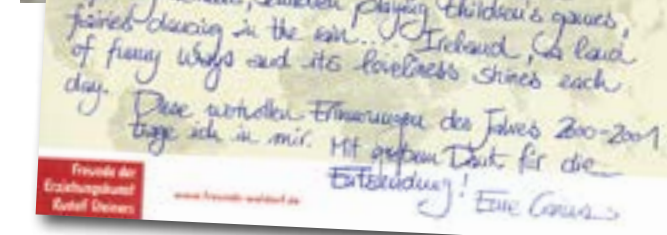 children playing children's games,
fairies dancing in the rain.... Ireland, a land
of funny ways and its loveliness shines each
day.
Diese wertvollen Erinnerungen des Jahres 2000-2001
trage ich in mir. Mit großem Dank für die
Entsendung! Eure
Freunde der
Erziehungskunst
Rudolf Steiners
www.freunde-waldorf.de